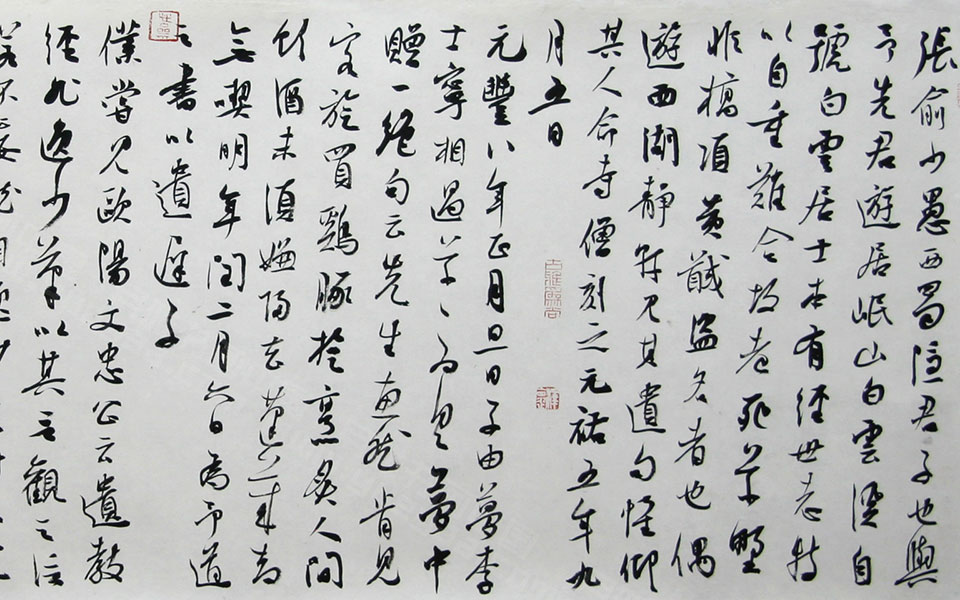 張俞少愚西蜀隱君子也與
予先君遊居岷山白雲溪自
號白雲居士本有經世志特
以自重難合故老死草野
非槁項黃馘盜名者也偶
遊西湖靜軒見其遺句懷仰
其人命寺僧刻之元祐五年九
月五日
元豐八年正月旦日子由夢李
士寧相過草草為具夢中
贈一絕句云先生惠然肯見
客旋買雞豚旋烹炙人間
飲酒未須嫌歸去蓬萊卻
無喫明年閏二月六日為予道
之書以遺遲子
僕嘗見歐陽文忠公云遺教
經非逸少筆以其言觀之信